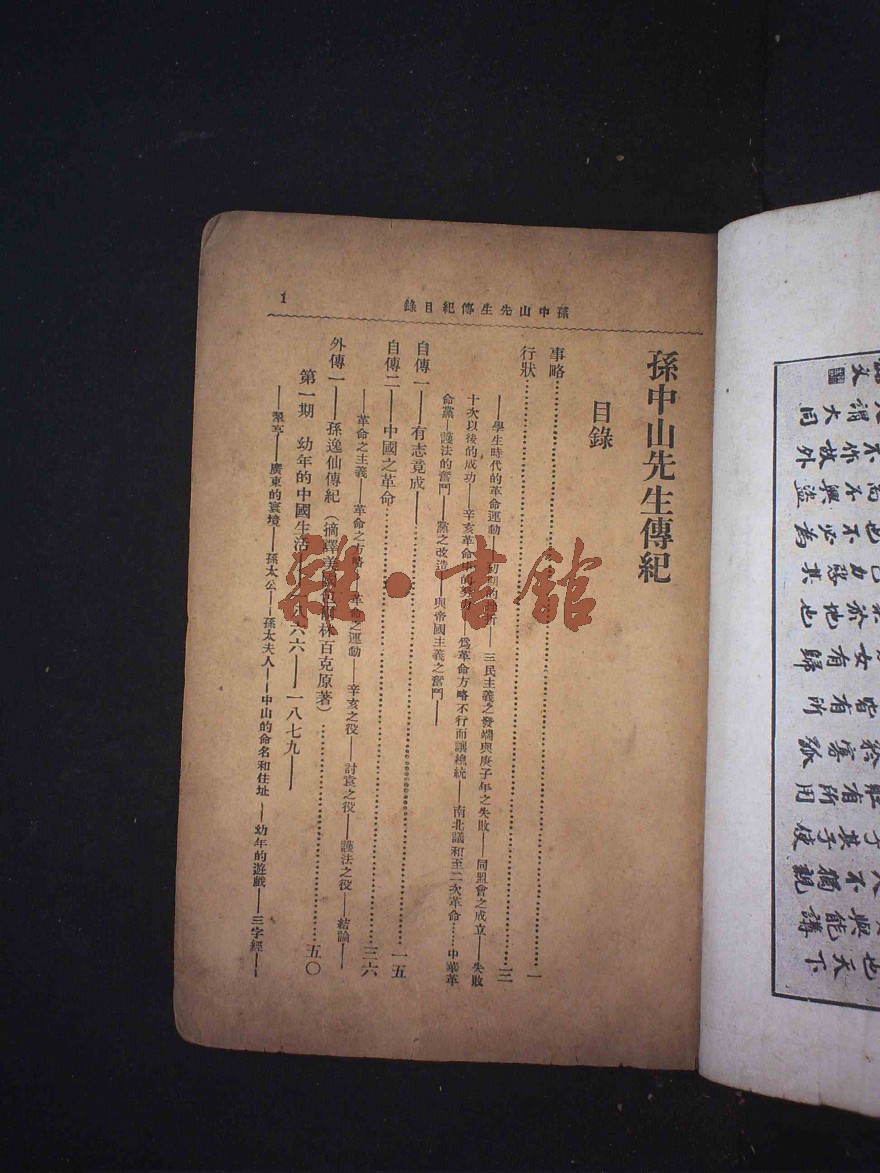 孫中山先生傳紀目錄
1
孫中山先生傳紀
目錄
事略……一
行狀……三
——學生時代的革命運動——初期的——三民主義之發端與庚子年之失敗——同盟會之成立——失敗
十次以後的成功——辛亥革命——爲革命方略不行而讓總統——南北議和至二次革命……中華革
命黨——護法的奮鬥——黨之改造——與帝國主義之奮鬥——
自傳一——有志竟成——……一五
自傳二——中國之革命……三六
——革命之主義——革命之方略——革命之運動——辛亥之役——討袁之役——護法之役——結論——
外傳一——孫逸仙傳紀（摘譯美國林百克原著）……五〇
第一期 幼年的中國生活——一八六六——一八七九——
——翠亨——廣東的寰境——孫太公——孫太夫人——中山的命名和住址——幼年的遊戲——三字經——
雜·書館
也天下
與能講
人不獨親
子其子使
壯有所用
矜寡孤
皆有所
女有歸
於地也